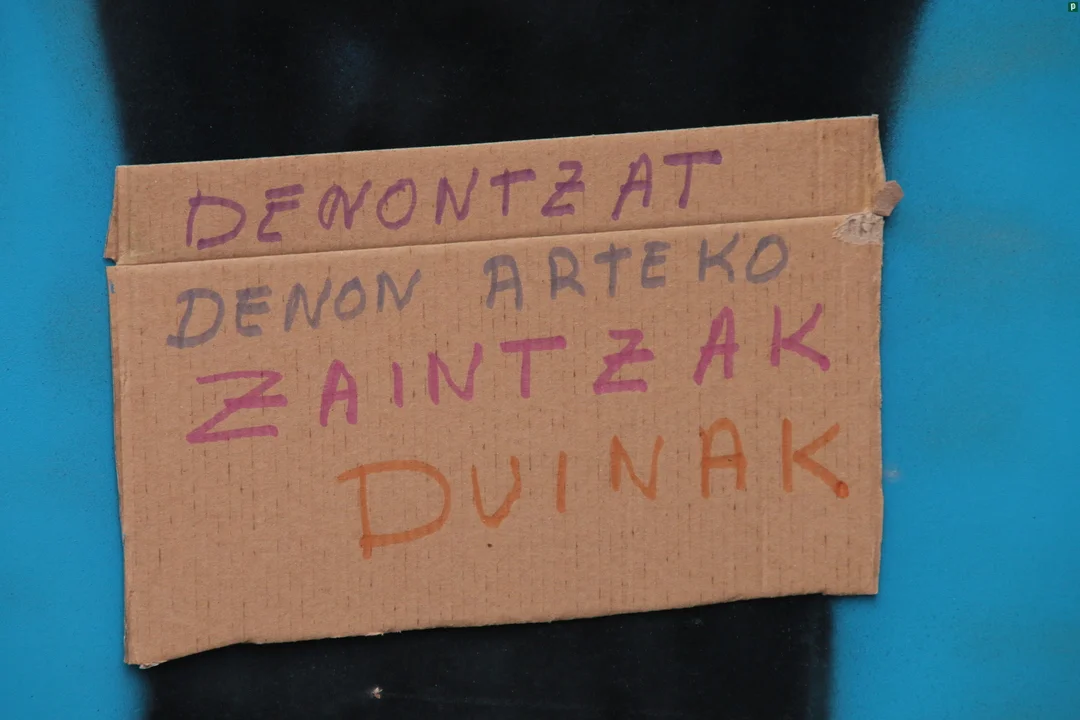 DENONTZAT
DENON ARTEKO
ZAINTZAK
DUINAK.